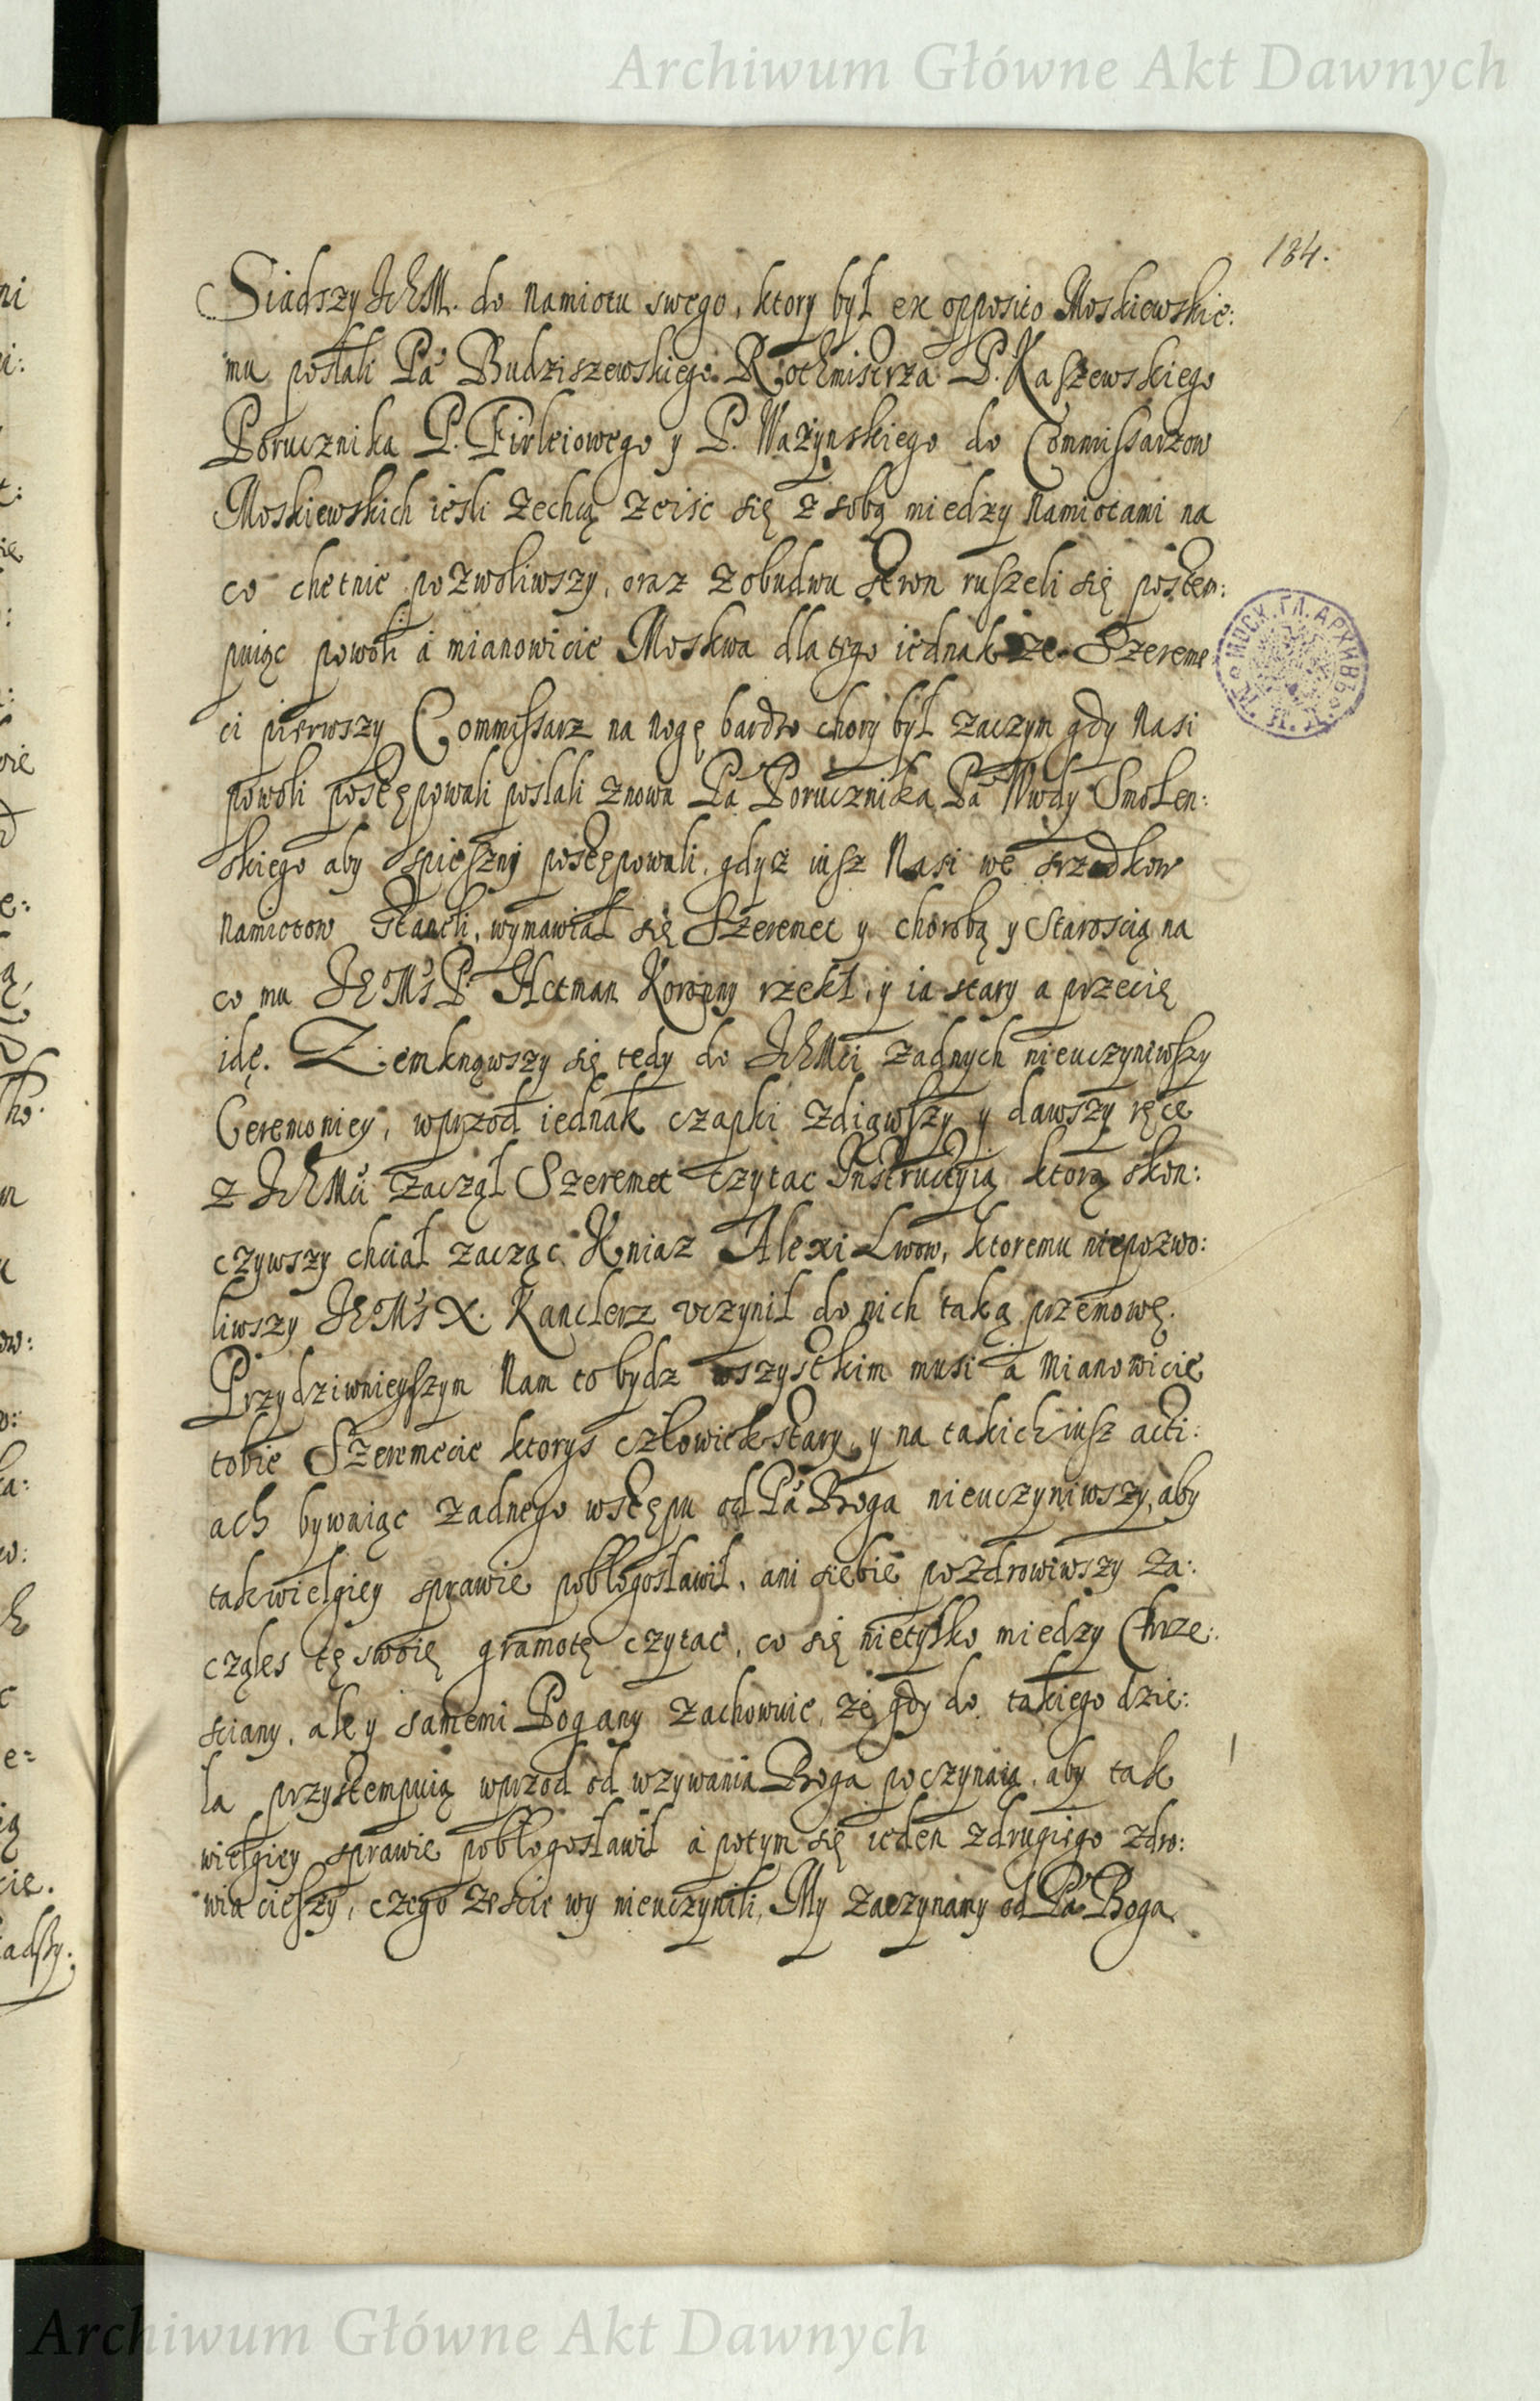 Archiwum Główne Akt Dawnych
184.
Siadszy IchM. do namiotu swego, ktory był ex opposito Moskiewskie:
mu posłali Pa Budziszewskiego Rothmistrza P. Kaszewskiego
Porucznika P. Firleiowego y P. Ważynskiego do Commissarzow
Moskiewskich iesli zechcą zeisc się z sobą miedzy namiotami na
co chetnie pozwoliwszy, oraz z obudwu stron ruszeli się postem:
puiąc powoli a mianowicie Moskwa dla tego iednak ze Szereme
ci pierwszy Commissarz na nogę bardzo chory był zaczym gdy Nasi
powoli postępowali posłali znowu Pa Porucznika Pa Wwdy Smolen:
skiego aby spieszni postępowali, gdysz iusz Nasi we srzodkow
namiotow staneli, wymawiał się Szeremet y chorobą y Staroscią na
co mu IEMs P. Hetman Koronny rzekł, y ia stary a przecię
idę. Zemknąwszy się tedy do IchMci zadnych nieuczyniwszy
Ceremoniey, wprzod iednak czapki zdiąwszy y dawszy ręce
z IchMci zaczął Szeremet czytac Instructyią ktorą skon:
czywszy chciał zacząc Kniaz Alexi Lwow, ktoremu niepozwo:
liwszy IEMs X. Kanclerz uczynił do nich taką przemowę.
Przydziwnieyszym Nam to bydz wszystkim musi a Mianowicie
tobie Szeremecie ktorys człowiek stary, y na takich iusz acti:
ach bywaiąc zadnego wstępu od Pa Boga nieuczyniwszy, aby
tak wielgiey sprawie pobłogosławił, ani siebie pozdrowiwszy za:
cząles tę swoię gramotę czytac, co się nietylko miedzy Chrze:
sciany, ale y samemi Pogany zachowuie, ze gdy do takiego dzie:
la przystempuią wprzod od wzywania Boga poczynaią, aby tak
wielgiey sprawie pobłogosławił a potym się ieden z drugiego zdro:
wia cieszy, czego zescie wy nieuczynili, My zaczynamy od Pa Boga
МОСК. ГЛ. АРХИВЪ
Archiwum Główne Akt Dawnych